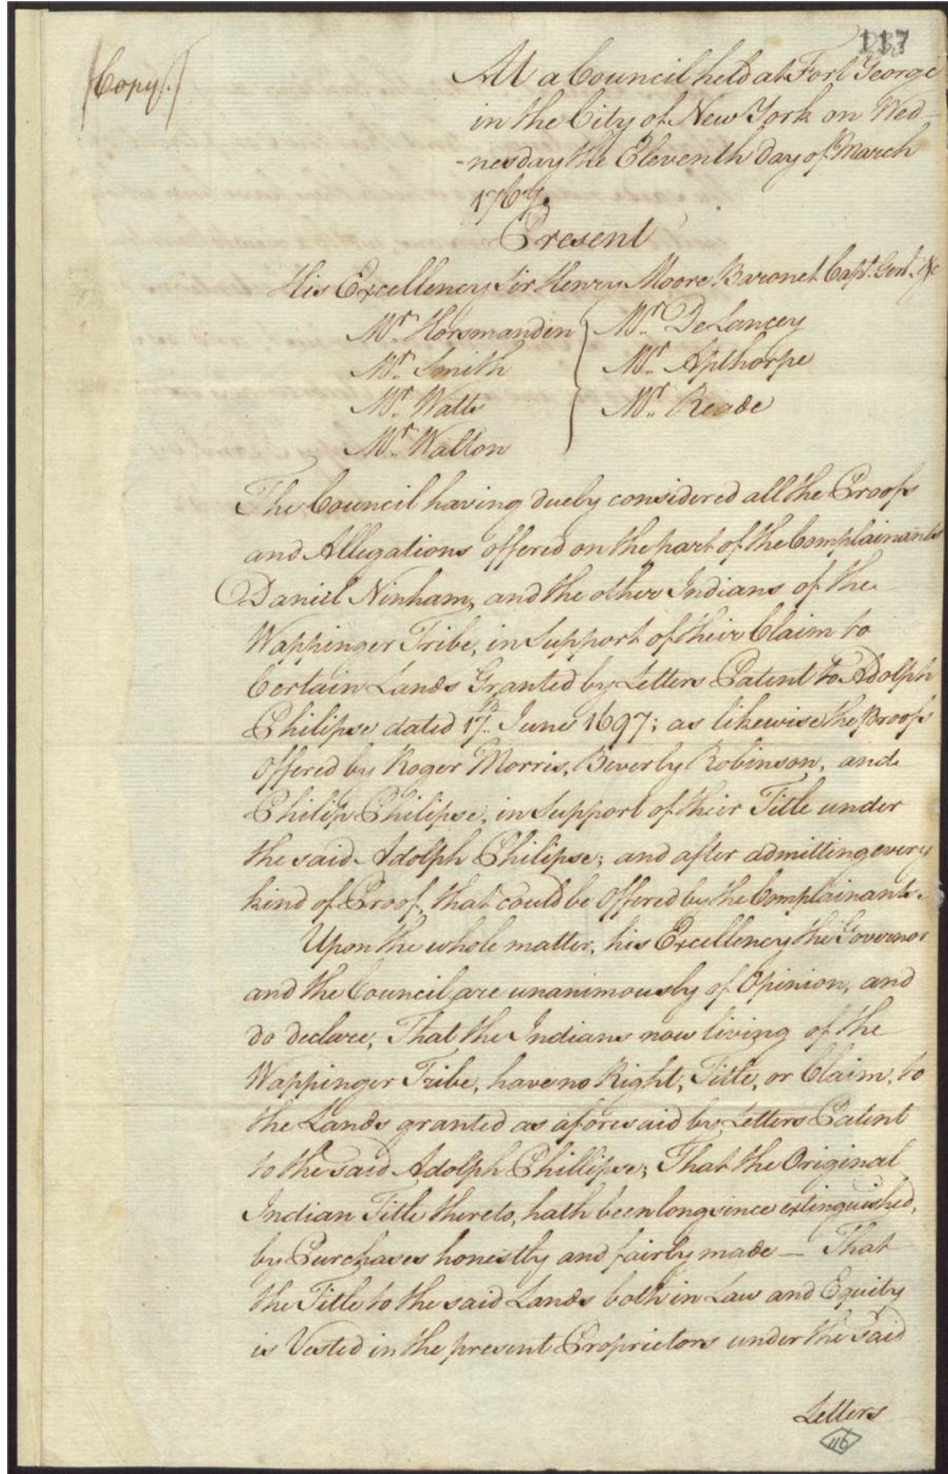 117
(Copy.)
At a Council held at Fort George
in the City of New York on Wed-
-nesday the Eleventh day of March
1767.
Present
His Excellency Sir Henry Moore Baronet Capt. Genl. &c
Mr. Horsmanden } Mr. DeLancey
Mr. Smith } Mr. Apthorpe
Mr. Watts } Mr. Reade
Mr. Walton
The Council having duely considered all the Proofs
and Allegations offered on the part of the Complainants
Daniel Ninham, and the other Indians of the
Wappinger Tribe, in Support of their Claim to
Certain Lands Granted by Letters Patent to Adolph
Philipse dated 17th. June 1697; as likewise the Proofs
offered by Roger Morris, Beverly Robinson, and
Philip Philipse, in Support of their Title under
the said Adolph Philipse; and after admitting every
kind of Proof, that could be Offered by the Complainants.
Upon the whole matter, his Excellency the Governor
and the Council are unanimously of Opinion, and
do declare, That the Indians now living of the
Wappinger Tribe, have no Right, Title, or Claim, to
the Lands granted as aforesaid by Letters Patent
to the said Adolph Phillipse; That the Original
Indian Title thereto, hath been long since extinguished,
by Purchases honestly and fairly made — That
the Title to the said Lands both in Law and Equity
is Vested in the present Proprietors under the said
Letters
116